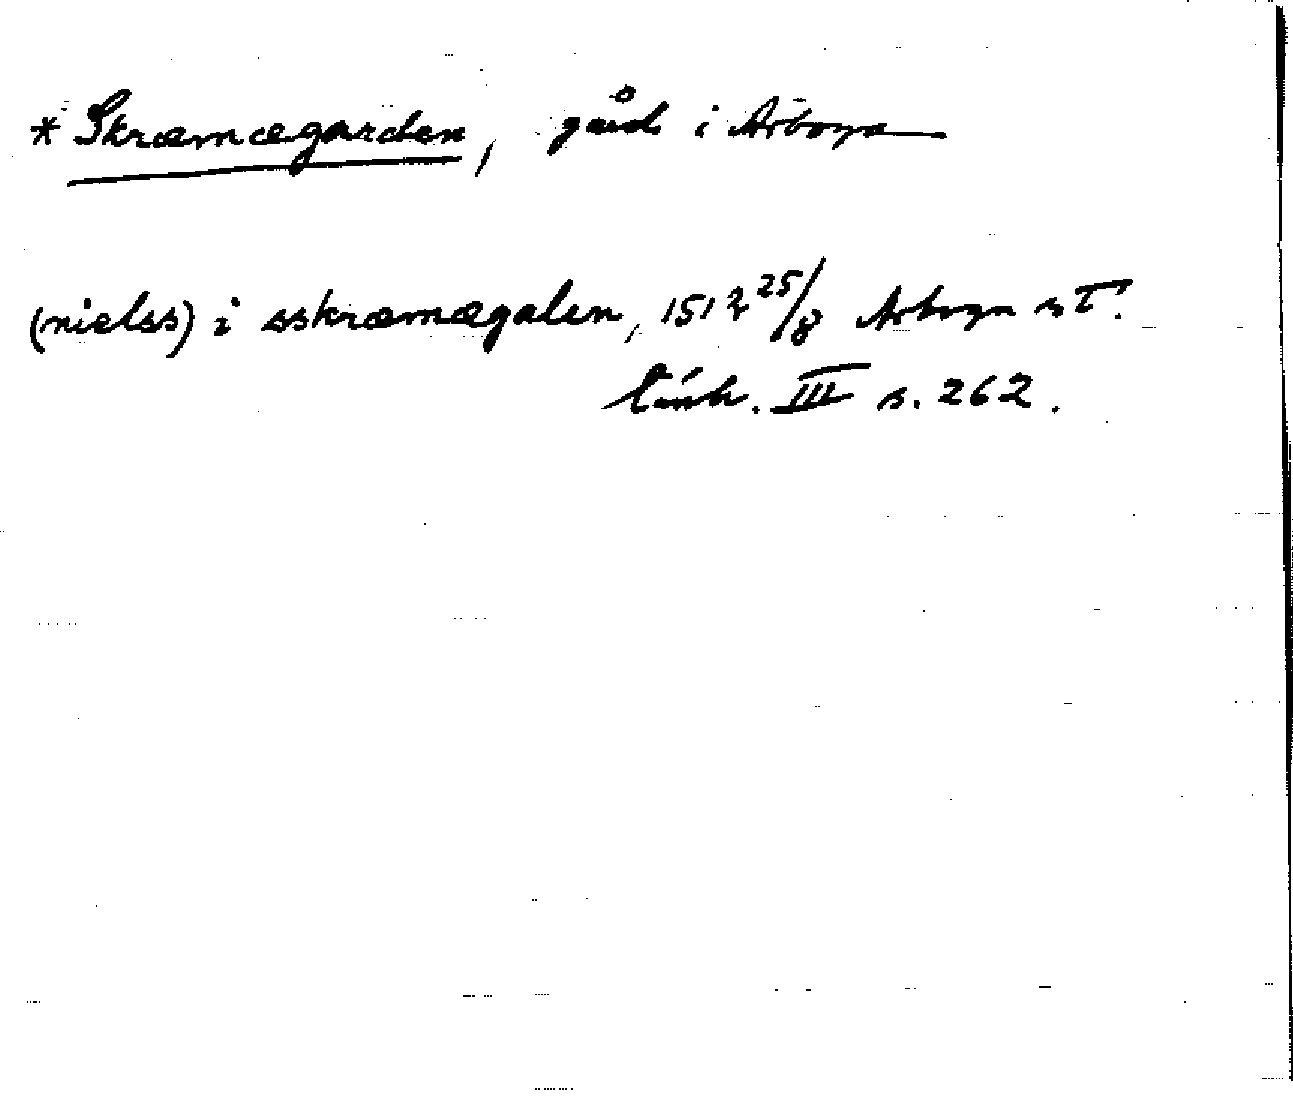 * Skræmægarden, gård i Arboga
(nielss) i sskræmægalen, 1512 25/8 Arboga sT:
Tänk. III s. 262.